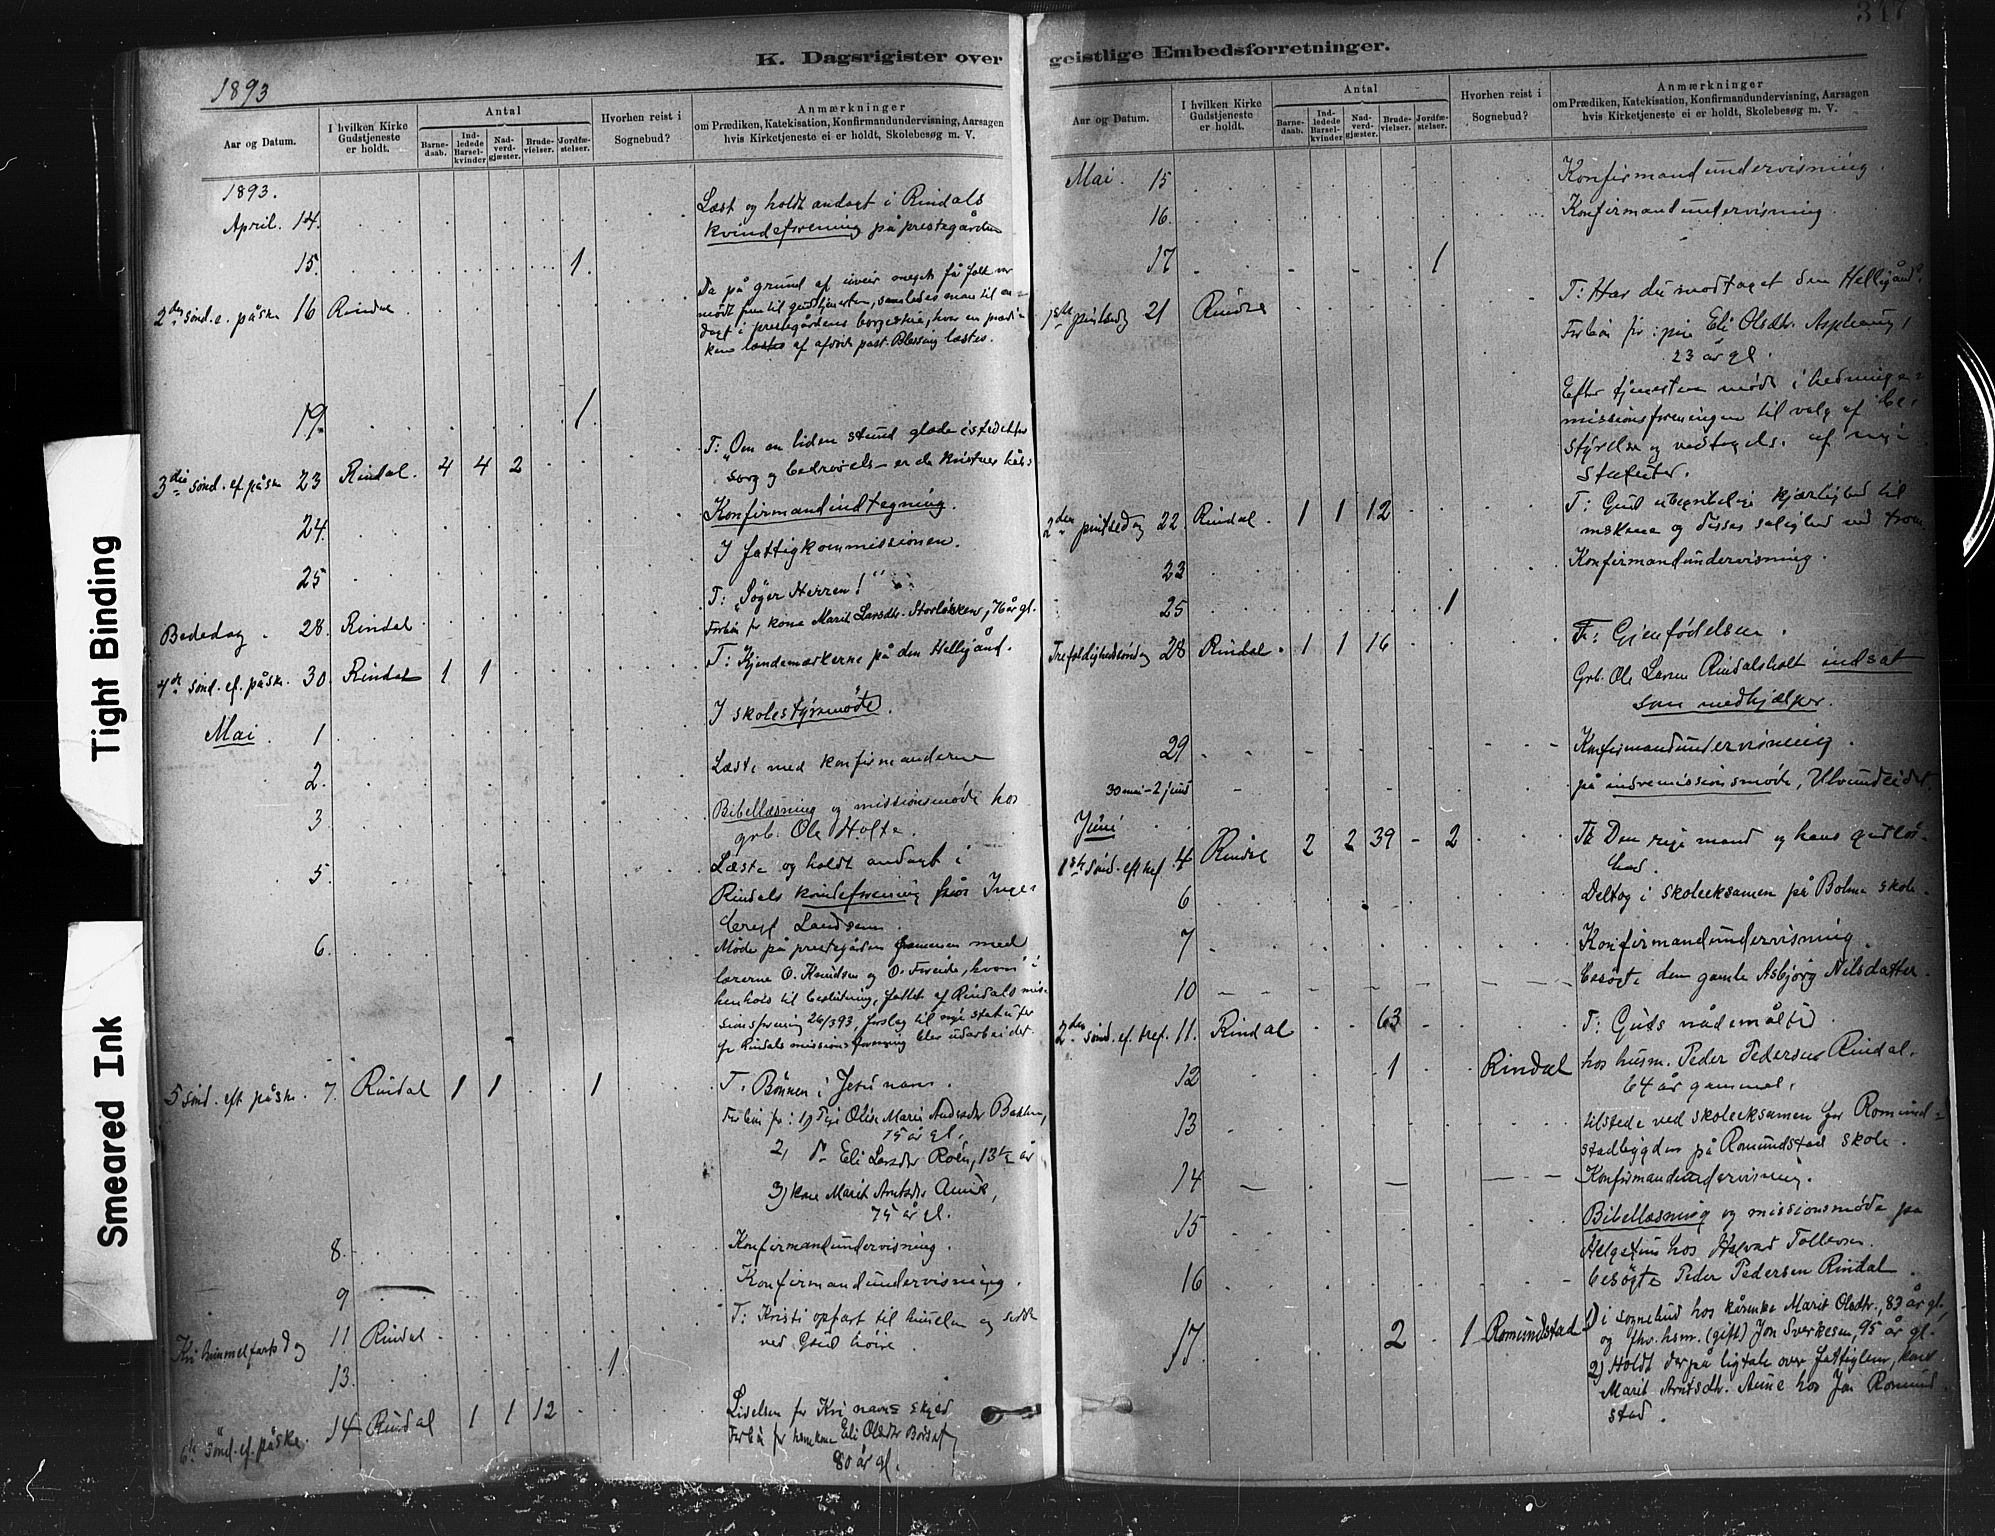 347
K. Dagsrigister over geistlige Embedsforretninger.
1893
Aar og Datum.
I hvilken Kirke Gudstjeneste er holdt.
Antal
Barne-daab.
Ind-ledede Barsel-kvinder
Nad-verd-gjæster.
Brude-vielser.
Jordfæ-stelser.
Hvorhen reist i Sognebud?
Anmærkninger
om Prædiken, Katekisation, Konfirmandundervisning, Aarsagen
hvis Kirketjeneste ei er holdt, Skolebesøg m. V.
1893.
April. 14. Læst og holdt andagt i Rindals
kvindeforening på prestegården
15. 1.
2den sønd. e. påske 16 Rindal Da på grund af uveir meget få folk var
mødt frem til gudstjenesten, samledes man til an-
dagt i prestegårdens borgestue, hvor en prædi-
ken læstes af afdøde past. Blessing læstes.
19. 1
3die sønd. ef. påske 23 Rindal. 4 4 2 T: "Om en liden stund glæde istedetfor
sorg og bedrøvelse er de kristnes håb"
24. Konfirmandindtegning.
25 I fattigkommissionen.
Bededag. 28. Rindal T: "Søger Herren!"
Forbøn for kone Marit Larsdtr. Storløkken, 76 år gl.
4de sønd. ef. påske. 30. Rindal 1 1 T: Kjendemærkerne på den Helligånd.
Mai. 1 I skolestyrmøde.
2. Læste med konfirmanderne
3 Bibellæsning og missionsmøde hos
grb. Ole Holte.
5. Læste og holdt andagt i
Rindals kvindeforening hos Inge-
6. Møde på prestegården sammen med
lærerne O. Knudsen og O. Foreide, hvori i
henhold til beslutning, fattet af Rindals mis-
sionsforening 26/3 93, forslag til nye statuter
for Rindals missionsforening blev udarbeidet.
5 sønd. eft påske. 7. Rindal 1 1 1 T. Bønnen i Jesu navn.
Forbøn for: 1) Pige Oline Marie Andersdtr Bakken,
15 år gl.
2, do Eli Larsdtr Roen, 13½ år
3) kone Marit Arntsdtr Aune,
75 år gl.
8. Konfirmandundervisning.
9 Konfirmandundervisning.
Kri himmelfartsdag 11 Rindal T: Kristi opfart til himlen og sæde
ved Guds høire.
13. 1.
6te sønd. ef. påske. 14 Rindal 1 1 12 Lidelsen for Kri navns skyld
80 år gl.
Aar og Datum.
I hvilken Kirke Gudstjeneste er holdt.
Antal
Barne-daab.
Ind-ledede Barsel-kvinder
Nad-verd-gjæster.
Brude-vielser.
Jordfæ-stelser.
Hvorhen reist i Sognebud?
Anmærkninger
om Prædiken, Katekisation, Konfirmandundervisning, Aarsagen
hvis Kirketjeneste ei er holdt, Skolebesøg m. V.
Mai. 15 Konfirmandundervisning.
16. Konfirmandundervisning.
17 1
1ste pintsedag 21 Rindal T: Har du modtaget den Helligånd?
Forbøn for: pige Eli Olsdtr.
23 år gl.
Efter tjenesten møde i hedninge-
missionsforeningen til valg af be-
styrelse og vedtagelse af nye
Statuter.
2den pintsedag 22. Rindal. 1 1 12 T: Guds ubegribelige kjærlighed til
mskene og disses salighed ved troen.
23 Konfirmandundervisning.
25 1
Trefoldighedssøndag 28 Rindal. 1 1 16 T: Gjenfødelsen.
Grb. Ole Larsen Rindalsholt indsat
som medhjælper.
29 Konfirmandundervisning.
30 mai - 2 juni på indremissionsmøde, Ulvundeidet.
Juni
1ste sønd. eft tref. 4 Rindal 2 2 39 - 2 T: Den rige mand og hans gudløs-
hed.
6 Deltog i skoleeksamen på Bolme skole.
7 Konfirmandundervisning.
10 besøgte den gamle Asbjørg Nilsdatter.
2den sønd. ef. tref. 11. Rindal 63 T: Guds nådemåltid
12 1 Rindal hos husm. Peder Pedersen Rindal.
64 år gammel.
13 tilstede ved skoleeksamen for Romund-
stadbygden på Romundstad skole.
14 Konfirmandundervisning.
15 Bibellæsning og missionsmøde på
Helgetun hos Halvard Tollevsen.
16 besøgte Peder Pedersen Rindal.
17. 2 1 Romundstad 1) i sognebud hos kårenke Marit Olsdtr., 83 år gl.,
og fhv. hsm. (gift) Jon Sverkesen, 95 år gl.
2) Holdt derpå ligtale over fattiglem, kone
Marit Arntsdtr. Aune hos Jon Romund-
stad.
Tight Binding
Smeared Ink